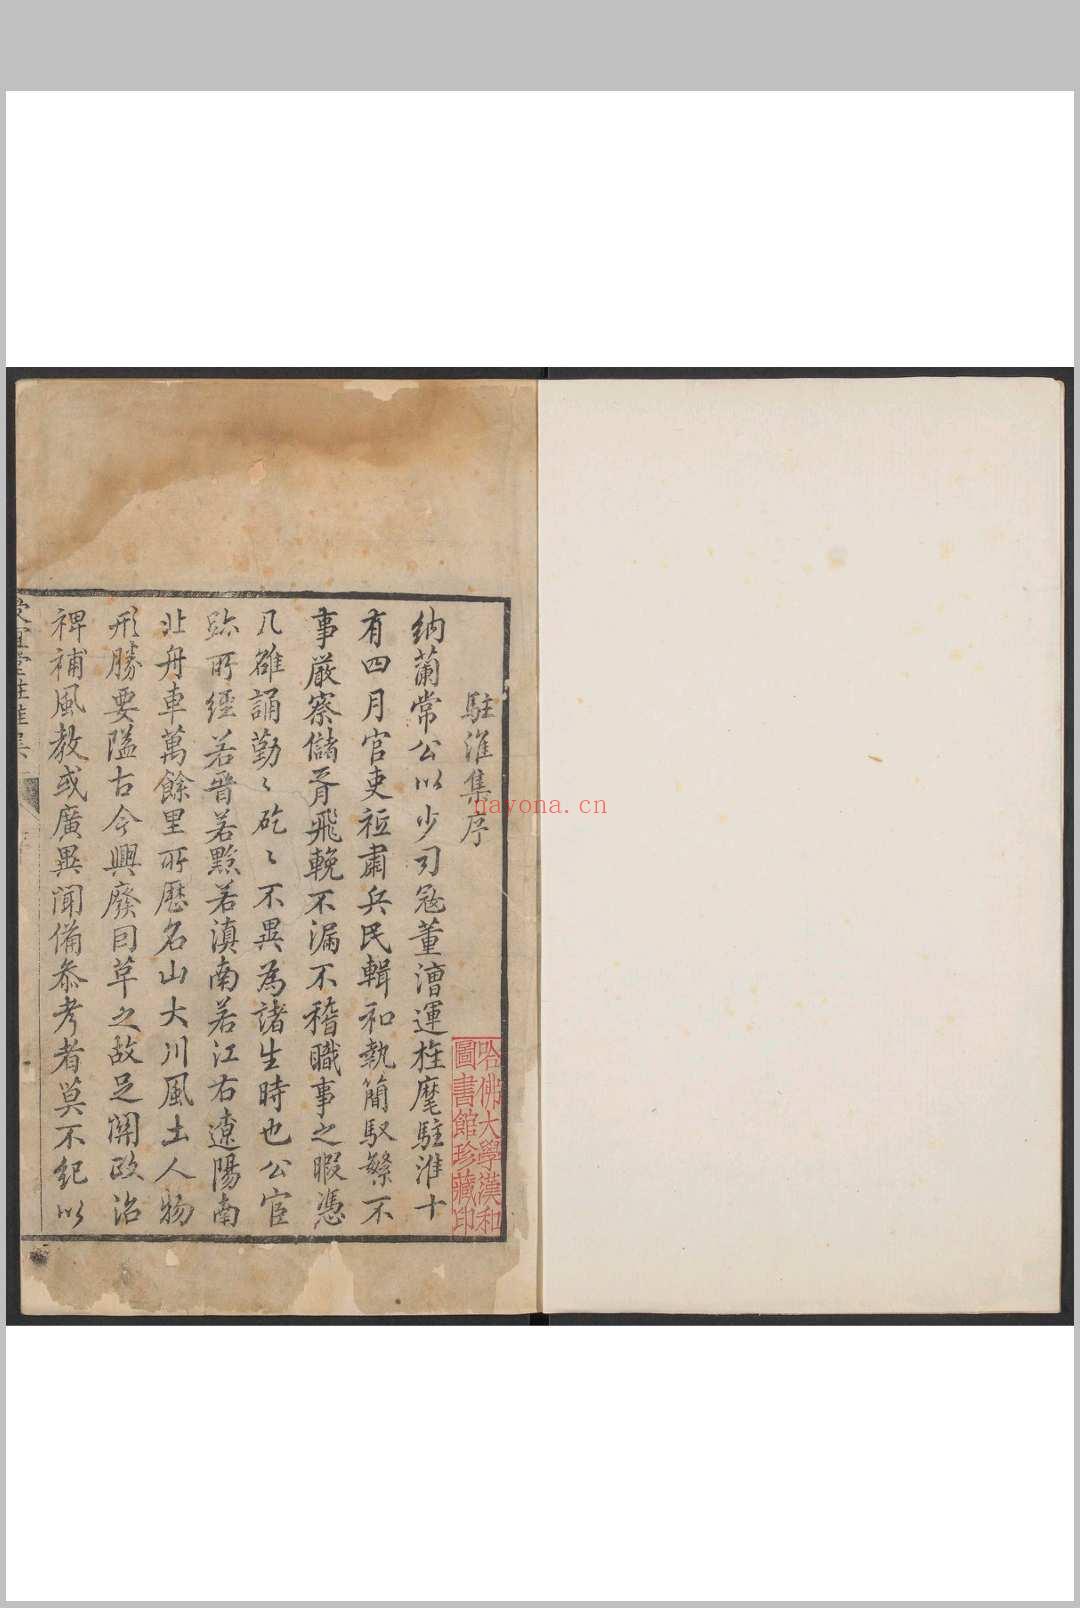 駐淮集序
納蘭常公以少司冦董漕運旌麾駐淮十
有四月官吏祗肅兵民輯和執簡馭繁不
事嚴察儲胥飛輓不漏不稽職事之暇憑
几雒誦勤〻矻〻不異為諸生時也公宦
跡所經若晉若黔若滇南若江右遼陽南
北舟車萬餘里所歷名山大川風土人物
形勝要隘古今興廢因革之故足関政治
裨補風教或廣異聞備叅考者莫不紀以
哈佛大學漢和
圖書館珍藏印
nayona.cn